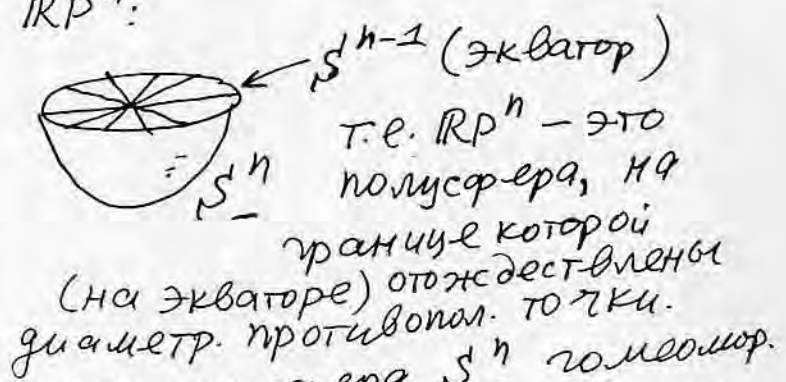 ℝPⁿ:
Sⁿ⁻¹ (экватор)
т.е. ℝPⁿ – это
полусфера, на
Sⁿ₋
границе которой
(на экваторе) отождествлены
диаметр. противопол. точки.
Sⁿ гомеомор.